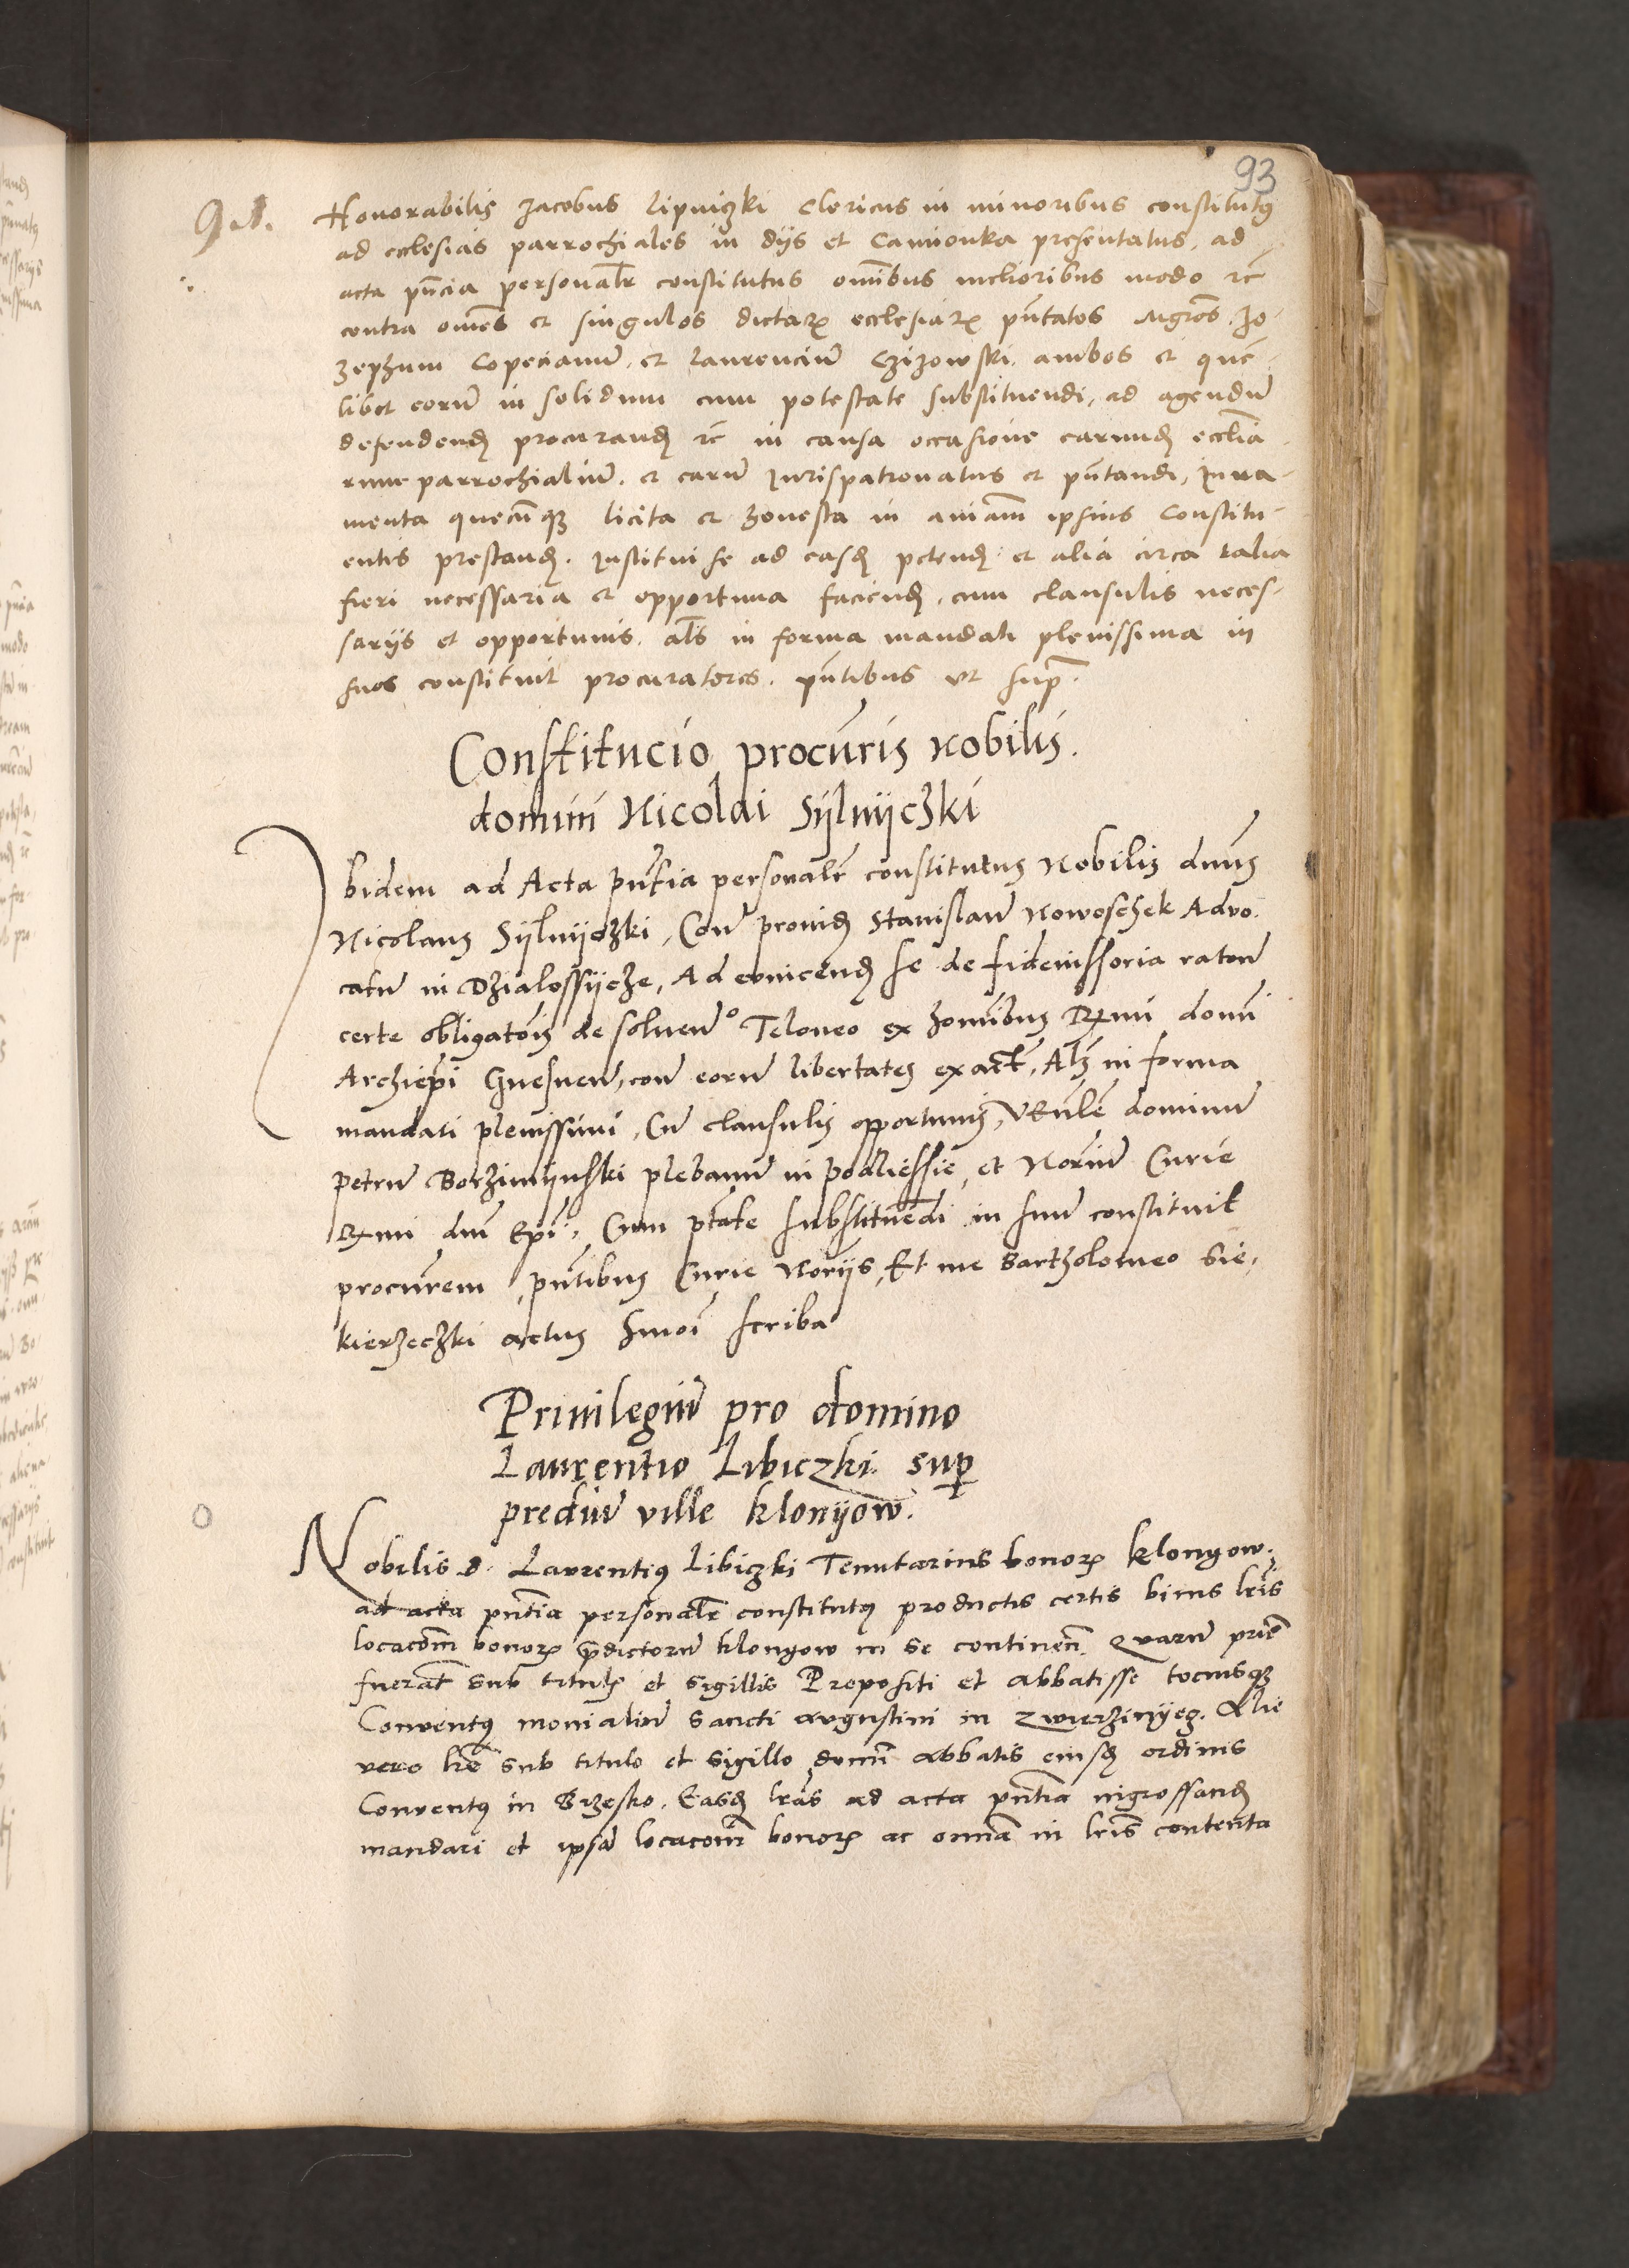 93
Honorabilis Jacobus Lipniczki Clericus in minoribus constitutꝰ
ad ecclesias parrochiales in Dijs et Camionka presentatus, ad
acta pn̄cia personalr̄ constitutus omībus melioribus modo rc̄
contra omēs et singulos dictarꝝ ecclesiarꝝ pn̄tatos Mgros̄ Jo-
zephum et Laurenciū Czizowski ambos et quē-
libet eorū in solidum cum potestate substituendi, ad agendū
defendendꝭ procurandꝭ rc̄ in causa occasione earundꝭ eccliā-
rum parrochialiū et earū Jurispatronatus et pn̄tandi, Jura-
menta quecūqꝫ licita et honesta in aniām ipsius Constitu-
entis prestandꝭ. Institui se ad easdꝭ petendꝭ et alia circa talia
fieri necessaria et opportuna faciendꝭ, cum clausulis neces-
sarijs et opportunis. als̄ in forma mandati plenissima in
suos constituit procuratores. pn̄tibus ut supꝛ.
Constitucio procur̄is Nobilis.
domini Nicolai Sÿlnÿczki
Ibidem ad Acta pn̄tia personalr̄ constitutus Nobilis dnūs
Nicolaus Sÿlnÿczki, Con̄ providꝭ Stanislaū Nowoschek Advo-
catū in Dzialossÿcze, Ad evincendꝭ se de fideiussoria ratone
certe obligatōis de solven° Teloneo ex hominibus Rx̄mi domī
Archiepī Gnesnen̄, con̄ eorū libertates exact̄, Als̄ in forma
mandati plenissimi, Cū clausulis opportunis, Vēn̄lē dominū
Petrū Borzimÿnski plebanū in podliessie, et Noriū Curie
Rx̄mi dnī Epī, Cum ptāte substituēdi in suū constituit
procur̄em, pn̄tibus Curie Norijs, Et me Bartholomeo Sie-
kierzeczki actus hmōi scriba
Privilegiū pro domino
Laurentio Libiczki sup
prediū ville Klonÿow.
Nobilis d. Laurentiꝰ Libiczki Tenutarius bonorꝝ Klonyow,
ad acta pn̄tia personalr̄ constitutꝰ productis certis binis lrīs
locacōm̄ bonorꝝ p̄dictorū Klonyow in se continen̄. Quarū prīe
fuerāt sub titulꝭ et sigillis Prepositi et abbatisse tociusqꝫ
Conventꝰ monialiū Sancti Augustini in Zwierzinÿeg. Alie
vero lrē sub titulo et sigillo domī abbatis eiusdꝭ ordinis
Conventꝰ in Brzesko. Easdꝭ lrās ad acta pn̄tia ingrossandꝭ
mandari et ipsā locacōm̄ bonorꝝ ac omnā in lrīs contenta